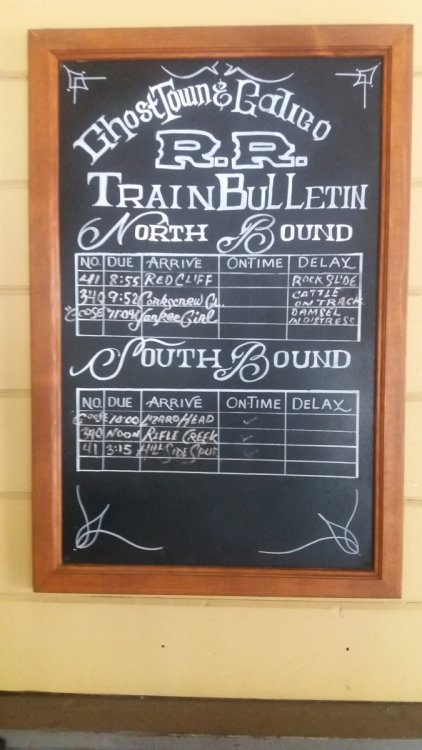 Ghost Town & Calico
R.R.
TRAIN BULLETIN
NORTH BOUND
NO. DUE ARRIVE ON-TIME DELAY
41 8:55 RED CLIFF ROCK SLIDE
340 9:52 Corkscrew G. CATTLE ON TRACK
GOOSE 11:04 Yankee Girl DAMSEL IN DISTRESS
SOUTH BOUND
NO. DUE ARRIVE ON-TIME DELAY
GOOSE 10:00 LIZARD HEAD ✓
340 NOON RIFLE CREEK ✓
41 3:15 HILL SIDE ✓